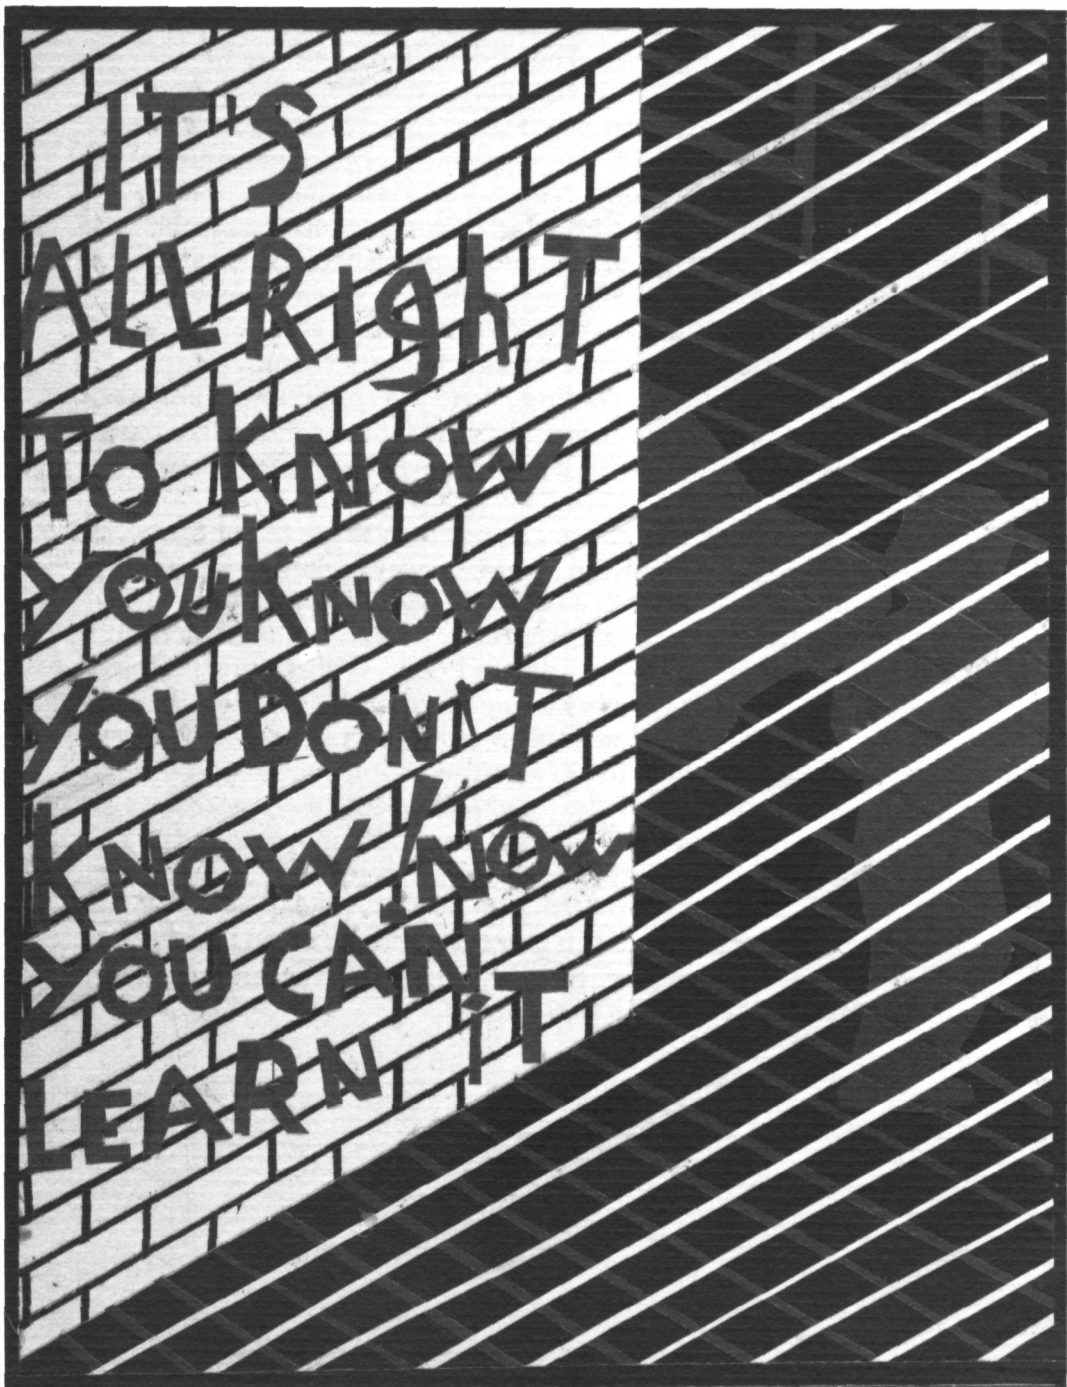 IT'S
ALLRIghT
To KNOW
YOUKNOW
YOUDON'T
KNOW!NOW
YOU CAN
LEARN iT